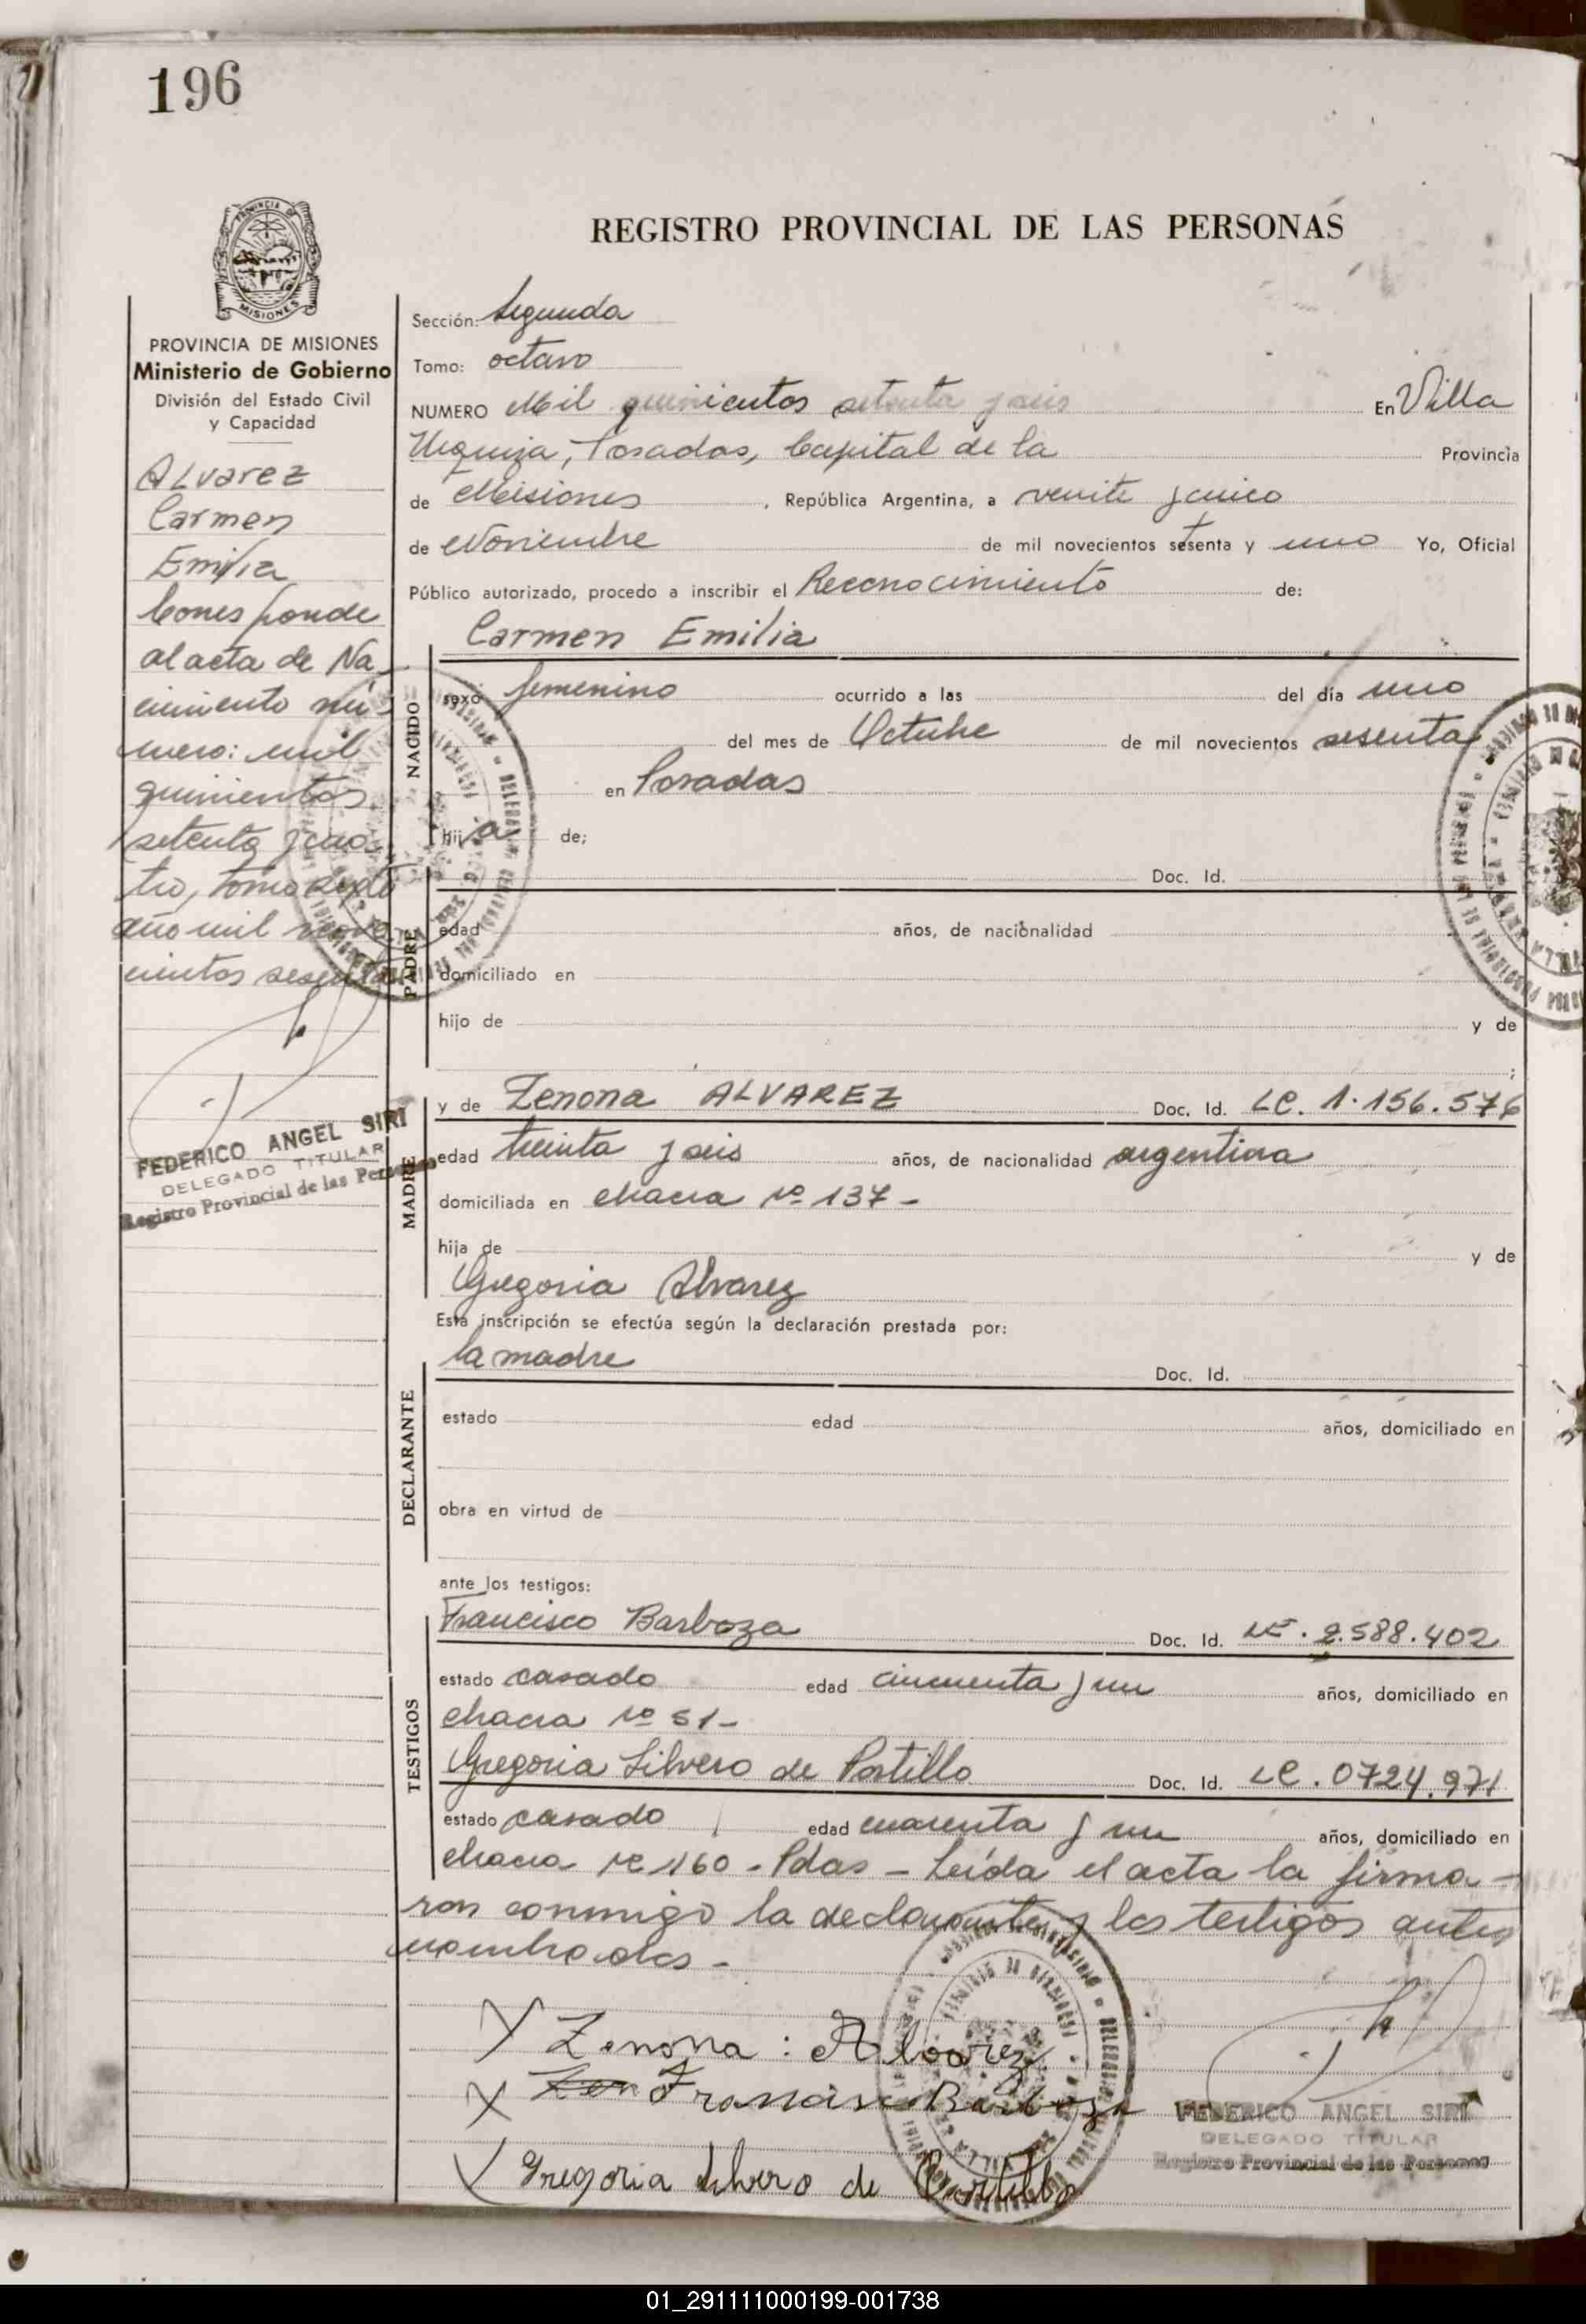 196
REGISTRO PROVINCIAL DE LAS PERSONAS
PROVINCIA DE MISIONES
Ministerio de Gobierno
División del Estado Civil
y Capacidad
ALVarez
Carmen
Emilia
Corresponde
al acta de Na
cimiento nú
mero: mil
quinientos
setenta y cua
tro, tomo sexto
año mil nove
cientos sesenta
FEDERICO ANGEL SIRI
DELEGADO TITULAR
Registro Provincial de las Personas
Sección: Segunda
Tomo: octavo
NUMERO Mil quinientos setenta y seis En Villa
Urquiza, Posadas, Capital de la Provincia
de Misiones, República Argentina, a veinte y cinco
de Noviembre de mil novecientos setenta y uno Yo, Oficial
Público autorizado, procedo a inscribir el Reconocimiento de:
Carmen Emilia
NACIDO
sexo femenino ocurrido a las del día uno
del mes de Octubre de mil novecientos sesenta
en Posadas
hija de;
Doc. Id.
PADRE
edad años, de nacionalidad
domiciliado en
hijo de y de
;
MADRE
y de Zenona ALVAREZ Doc. Id. LC. 1.156.576
edad treinta y seis años, de nacionalidad argentina
domiciliada en chacra nº 137-
hija de y de
Gregoria Alvarez
Esta inscripción se efectúa según la declaración prestada por:
DECLARANTE
la madre Doc. Id.
estado edad años, domiciliado en
obra en virtud de
ante los testigos:
TESTIGOS
Francisco Barboza Doc. Id. LE. 2.588.402
estado casado edad cincuenta y un años, domiciliado en
chacra nº 51-
Gregoria Silvero de Portillo Doc. Id. LC. 0724.971
estado casado edad cuarenta y un años, domiciliado en
chacra nº 160 - Pdas - Leída el acta la firma-
ron conmigo la declarante y los testigos antes
nombrados-
X Zenona : Alvarez
X Francisco Barboza
X Gregoria silvero de Portillo
FEDERICO ANGEL SIRI
DELEGADO TITULAR
Registro Provincial de las Personas
01_291111000199-001738